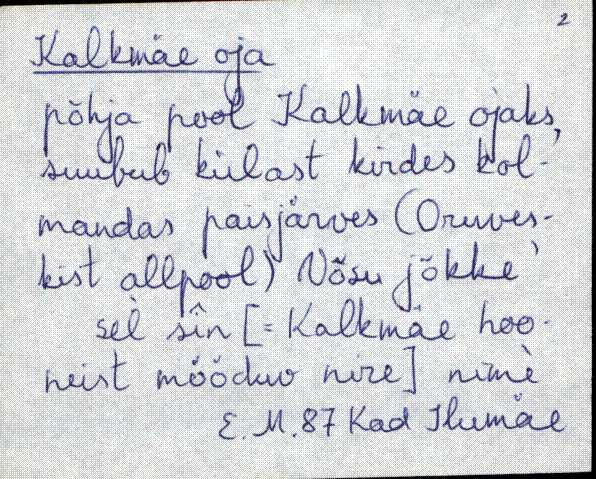 2
Kalkmäe oja
põhja pool Kalkmäe ojaks,
suubub külast kirdes kol-
mandas paisjärves (Oruves-
kist allpool) Võsu jõkke
sel̀ sîn [= Kalkmäe hoo-
neist mööduv nire] nimè
E. M. 87 Kad Ilumäe